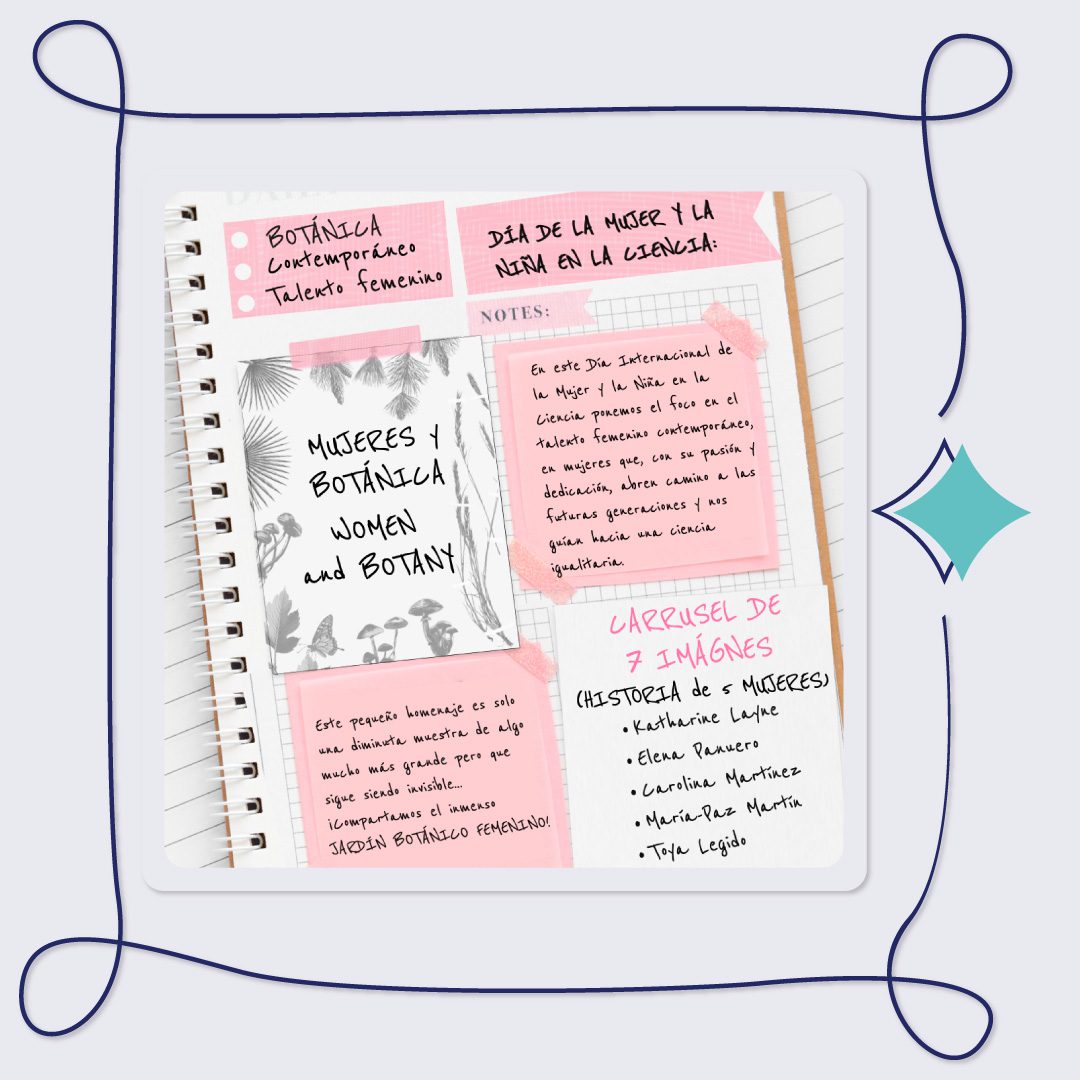 BOTÁNICA
Contemporáneo
Talento femenino
DÍA DE LA MUJER Y LA
NIÑA EN LA CIENCIA:
NOTES:
MUJERES Y
BOTÁNICA
WOMEN
and BOTANY
En este Día Internacional de
la Mujer y la Niña en la
Ciencia ponemos el foco en el
talento femenino contemporáneo,
en mujeres que, con su pasión y
dedicación, abren camino a las
futuras generaciones y nos
guían hacia una ciencia
igualitaria.
Este pequeño homenaje es solo
una diminuta muestra de algo
mucho más grande pero que
sigue siendo invisible...
¡Compartamos el inmenso
JARDÍN BOTÁNICO FEMENINO!
CARRUSEL DE
7 IMÁGNES
(HISTORIA de 5 MUJERES)
•Katharine Layne
•Elena Panuero
•Carolina Martínez
•María-Paz Martín
•Toya Legido